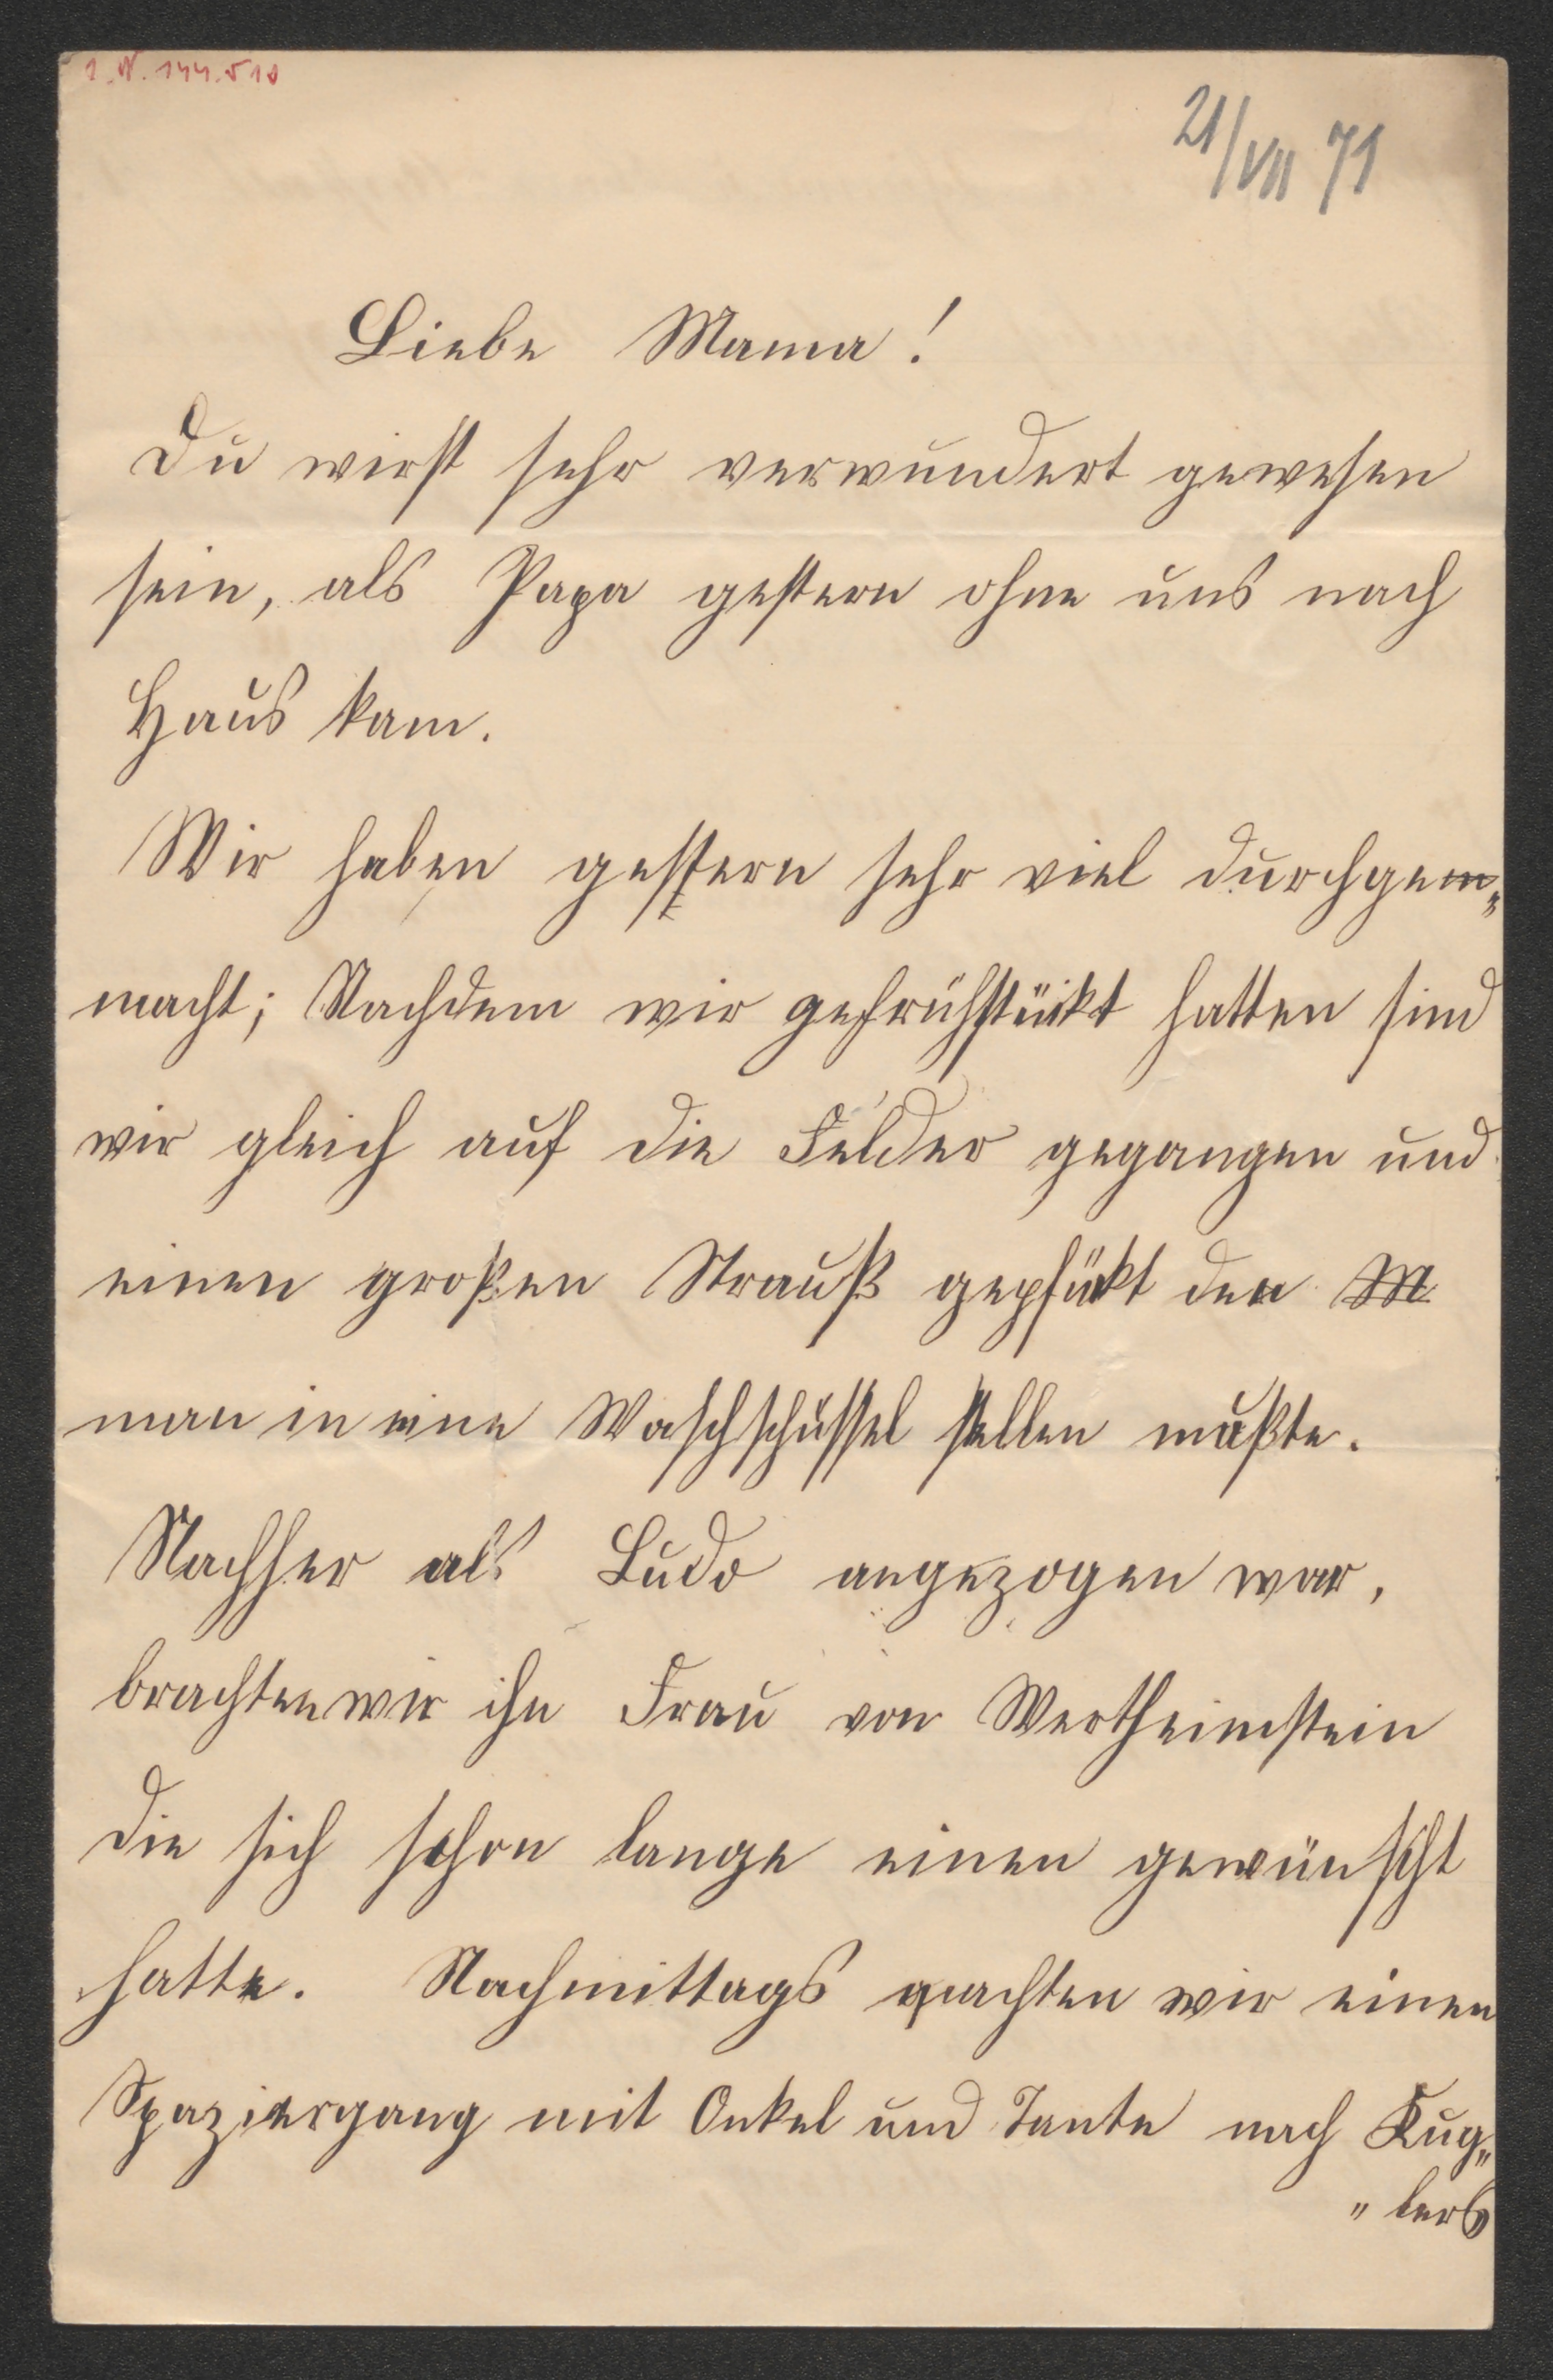 I. N. 144.510
21/VII 71
Liebe Mama!
Du wirst sehr verwundert gewesen
sein, als Papa gestern ohne uns nach
Haus kam.
Wir haben gestern sehr viel durchgem„
macht; Nachdem wir gefrühstükt hatten sind
wir gleich auf die Felder gegangen und
einen großen Strauß gepfükt den M
man in eine Waschschüssel stellen mußte.
Nachher als Ludo angezogen war,
brachten wir ihn Frau von Wertheimstein
die sich schon lange einen gewünscht
hatte. Nachmittags machten wir einen
Spaziergang mit Onkel und Tante nach Kug„
„lers